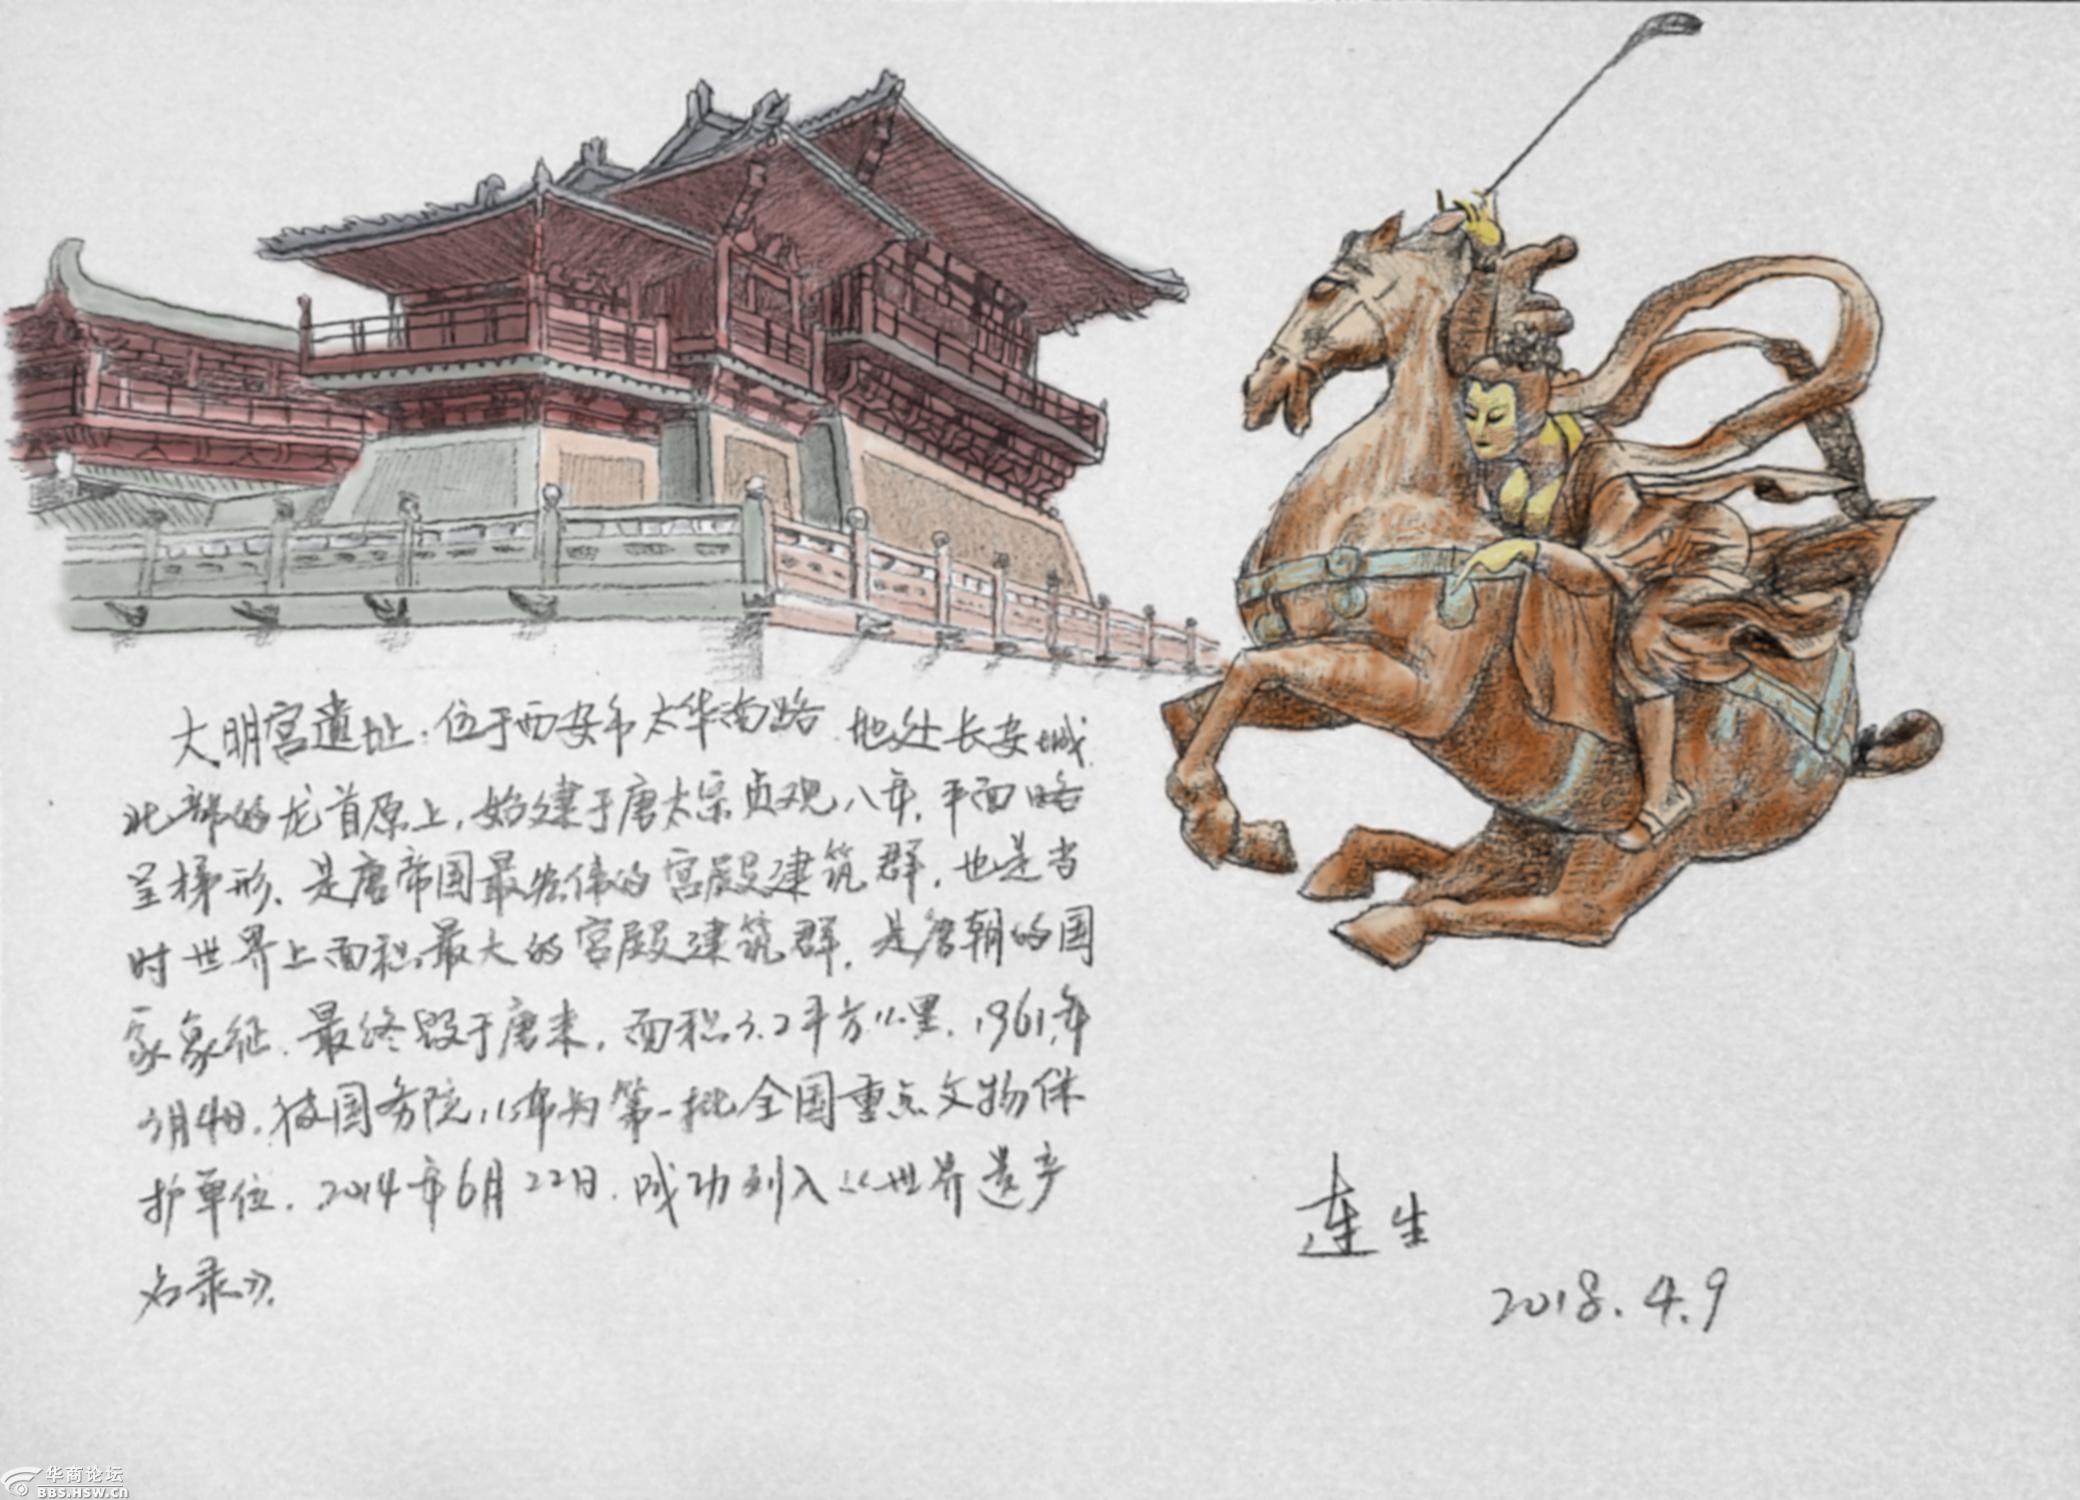 大明宫遗址:位于西安市太华南路.地处长安城
北部的龙首原上,始建于唐太宗贞观八年,平面略
呈梯形.是唐帝国最宏伟的宫殿建筑群,也是当
时世界上面积最大的宫殿建筑群.是唐朝的国
家象征.最终毁于唐末,面积3.2平方公里.1961年
3月4日.被国务院公布为第一批全国重点文物保
护单位.2014年6月22日.成功列入《世界遗产
名录》.
连生
2018.4.9
华商论坛
BBS.HSW.CN